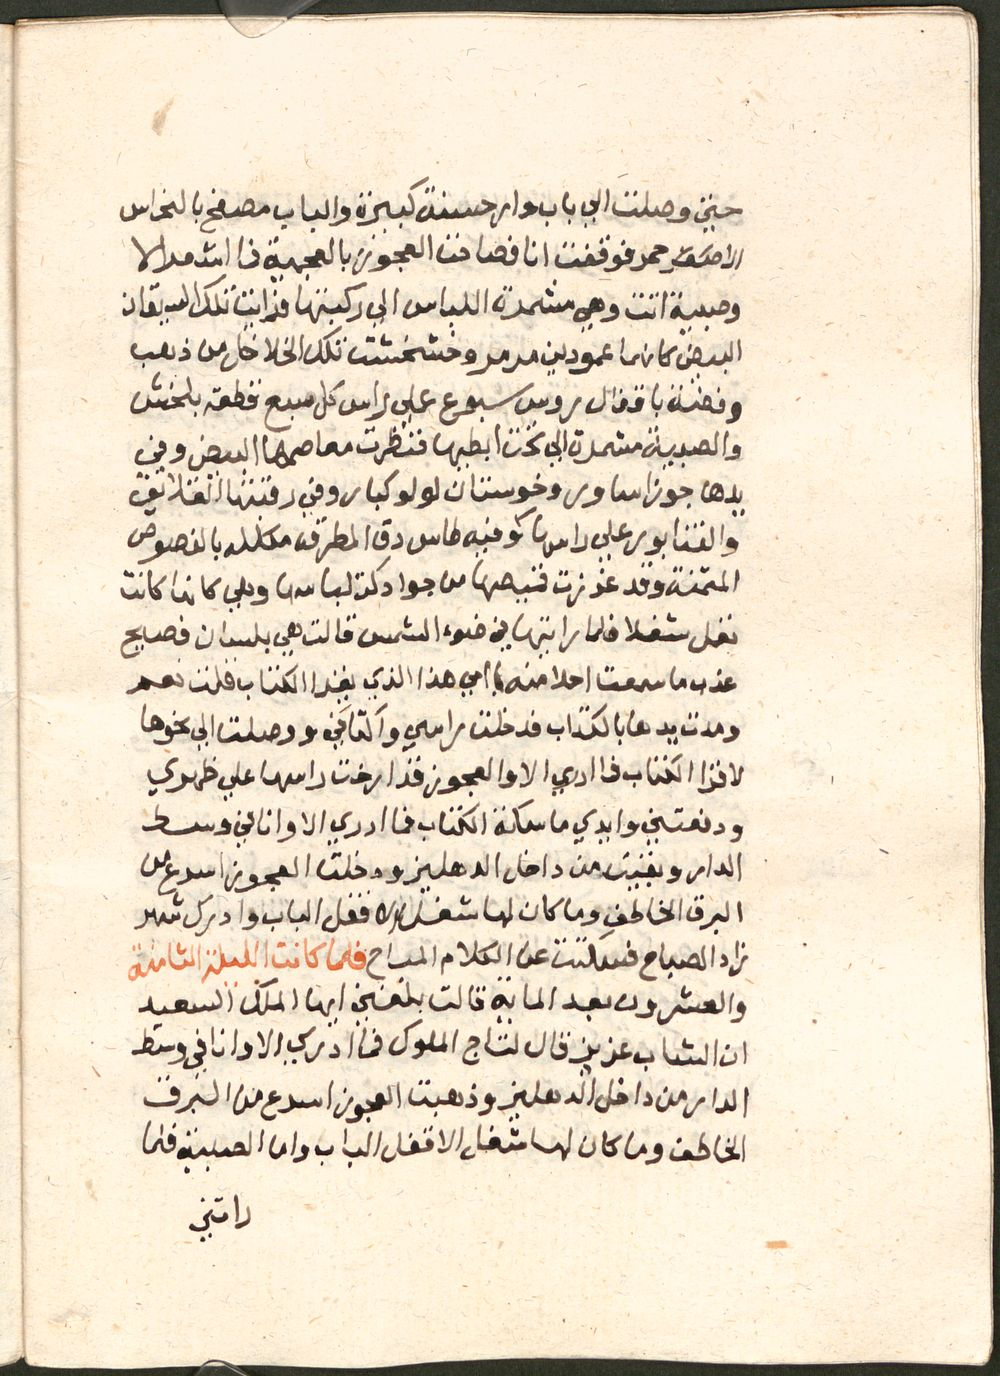 حتي وصلت الي باب دار حسنة كبيرة والباب مصفح بالنحاس
الاصفر فوقفت انا فصاحت العجوز بالعجمية فما اشعر الا
وصبية اتت وهي مشمرة اللباس الي ركبتها فرايت تلك السيقان
البيض كانها عمودين مرمر وخشخشت تلك الخلاخل من ذهب
وفضة باقفال روس سبوع علي راس كل سبع قطعة بلخش
والصبية مشمرة الي تحت ابطيها فنظرت معاصمها البيض وفي
يدها جوز اساور وخوستان لولو كبار وفي رقبتها القلايق
علي راسها كوفيه طاس دق المطرقه مكلله بالفصوص
المثمنة وقد غرزت قميصها من جوا دكة لباسها وهي كانها كانت
تعمل شغلا فلما رايتها في ضوء الشمس قالت هي بلسان فصيح
عذب ما سمعت احلا منه يا امي هذا الذي يقرا الكتاب قلت نعم
ومدت يدها بالكتاب فدخلت براسي واكتافي ووصلت الي نحوها
لاقرا الكتاب فما ادري الا والعجوز قد ارخت راسها علي ظهري
ودفعتني وايدي ماسكة الكتاب فما ادري الا وانا في وسط
الدار وبقيت من داخل الدهليز ودخلت العجوز اسرع من
البرق الخاطف وما كان لها شغل الا قفل الباب وادرك شهر
زاد الصباح فسكتت عن الكلام المباح فلما كانت الليلة الثامنة
والعشرون بعد الماية قالت بلغني ايها الملك السعيد
ان الشاب عزيز قال لتاج الملوك فما ادري الا وانا في وسط
الدار من داخل الدهليز وذهبت العجوز اسرع من البرق
الخاطف وما كان لها شغل الا قفل الباب واما الصبية فلما
راتني